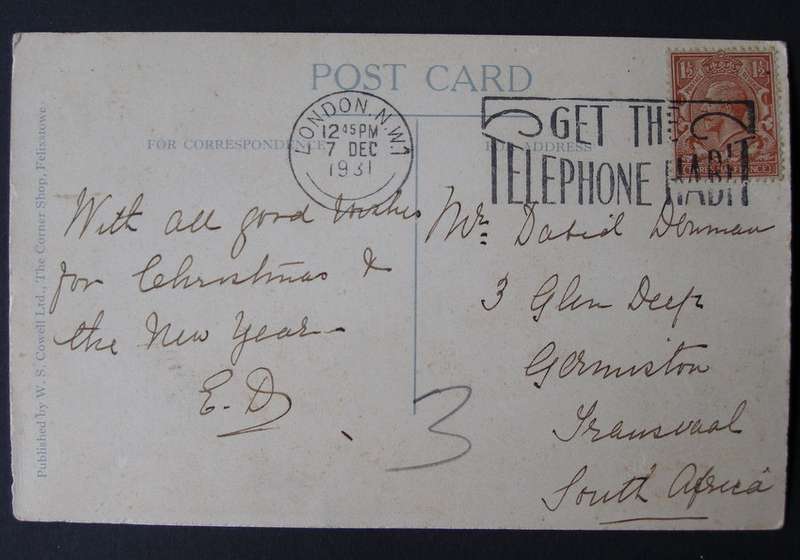 POST CARD
FOR CORRESPONDENCE
FOR ADDRESS
LONDON. N.W.1
12 45 PM
7 DEC
1931
GET THE
TELEPHONE HABIT
1½ 1½
With all good wishes
for Christmas &
the New Year
E. D
Mr David Denman
3 Glen Deep
Germiston
Transvaal
South Africa
3
Published by W. S. Cowell Ltd., The Corner Shop, Felixstowe.